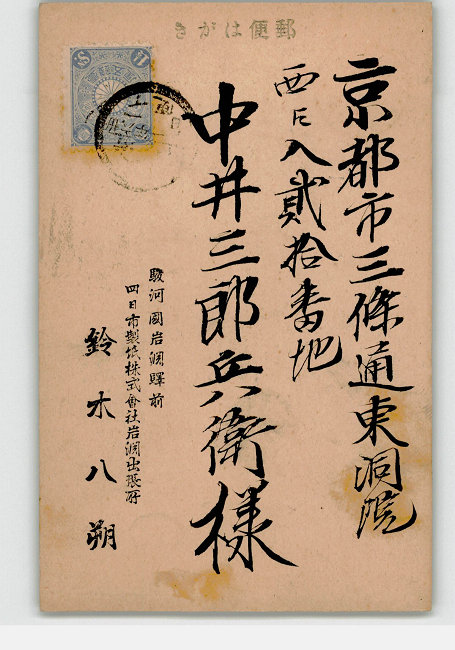 郵便はがき
京都市三條通東洞院
西エ入貳拾番地
中井三郎兵衛様
駿河國岩淵驛前
四日市製紙株式會社岩淵出張所
鈴木八朔